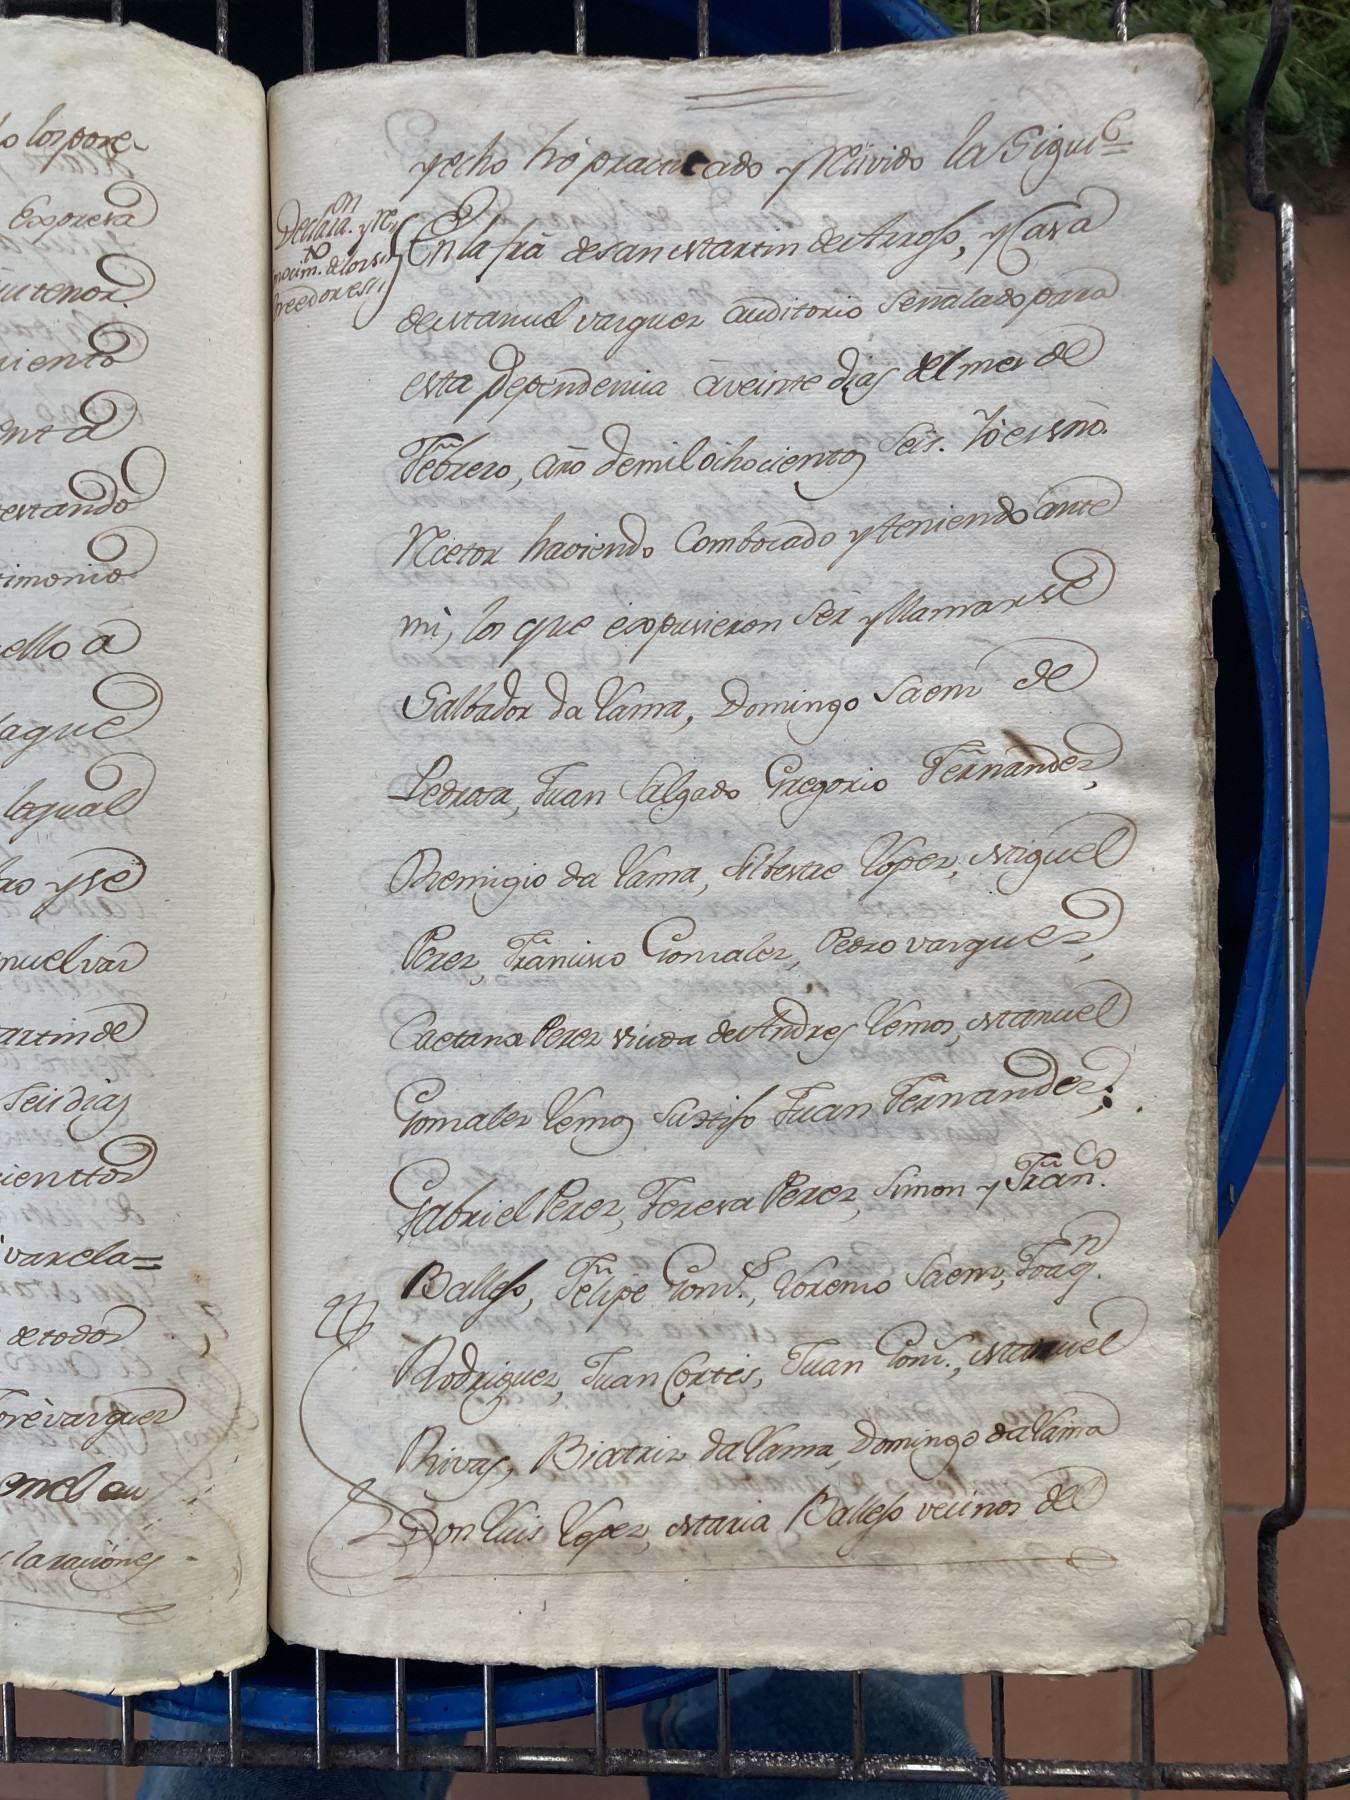 lo los pore-
Expresa
su tenor.
miento
enta
estando
timonio
ello a
que
la qual
y se
nuel var
artin de
Seis dias
varela=
de todos
Josè varquez
claraciones
y echo hô practicado y Recivido la Siguite=
Declaraon. y Re,,
nocim.to de los
Creedores,,
En la frâ de san Martin de Arrojo, y Casa
de Manuel varquez auditorio Señalado para
esta Dependencia a veinte dias del mes de
Febrero, año de mil ochocientos Seis. Yô essno.
Rector haviendo Combocado y teniendo ante
mi, los que expusieron Ser y llamarse
Salbador da Yama, Domingo Saenz de
Pedrosa, Juan Salgado Gregorio Fernandez,
Remigio da Yama, Silbestre Lopez, Miguel
Perez, Francisco Gonzalez, Pedro varquez,
Caetana Perez viuda de Andres Lemos, Manuel
Gonzalez Lemos Su hijo Juan Fernandez,
Gabriel Perez, Teresa Perez, Simon y Fran.co
Ballejo, Felipe Gonz.s, Lorenzo Saenz, Joaq.n
Rodriguez, Juan Cortés, Juan Gonz.s, Manuel
Rivas, Biatriz da Yama, Domingo da Yama
Don Luis Lopez, Maria Ballejo vecinos de